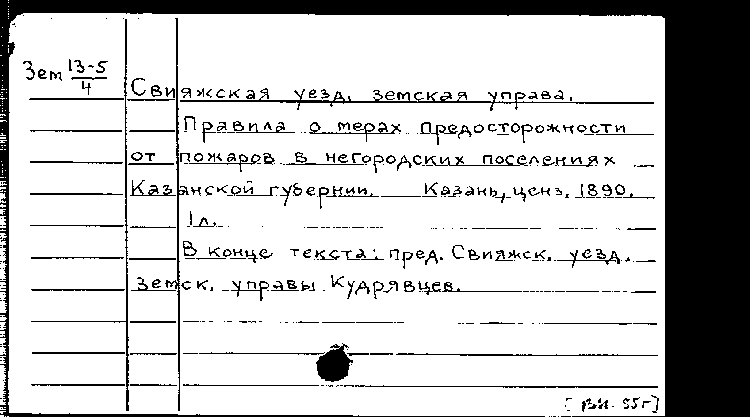 Зем 13-5/4
Свияжская уезд. земская управа.
Правила о мерах предосторожности
от пожаров в негородских поселениях
Казанской губернии. Казань, ценз. 1890.
1 л.
В конце текста: пред. Свияжск. уезд.
Земск. управы Кудрявцев.